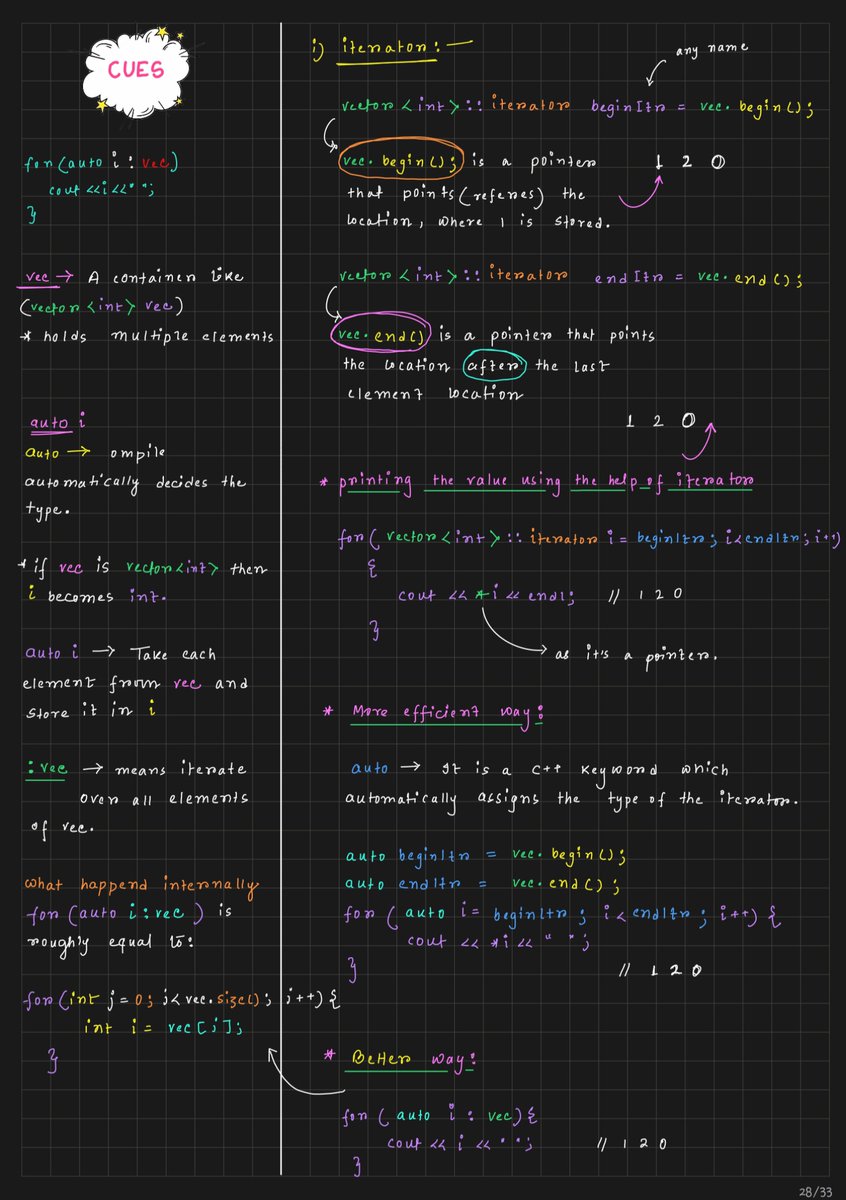 CUES
for(auto i : vec)
cout <<i<<" ";
}
vec → A container like
(vector <int> vec)
* holds multiple elements
auto i
auto → ompile
automatically decides the
type.
* if vec is vector<int> then
i becomes int.
auto i → Take each
element from vec and
store it in i
: vec → means iterate
over all elements
of vec.
what happend internally
for (auto i : vec ) is
roughly equal to:
for(int j = 0; j< vec.size(); j++) {
int i = vec[j];
}
i) iterator: —
any name
vector <int> :: iterator beginItr = vec. begin();
vec. begin(); is a pointer
1 2 0
that points (referes) the
location, where 1 is stored.
vector <int> :: iterator endItr = vec. end();
vec. end() is a pointer that points
the location after the last
element location
1 2 0
* printing the value using the help of iterator
for( vector <int> :: iterator i = beginItr; i<endItr; i++)
{
cout << *i << endl; // 1 2 0
}
as it's a pointer.
* More efficient way:
auto → It is a C++ keyword which
automatically assigns the type of the iterator.
auto beginItr = vec. begin();
auto endItr = vec. end();
for ( auto i = beginItr ; i< endItr ; i++) {
cout << *i << " ";
}
// 1 2 0
* Better way:
for ( auto i : vec) {
cout << i << " "; // 1 2 0
}
28/33